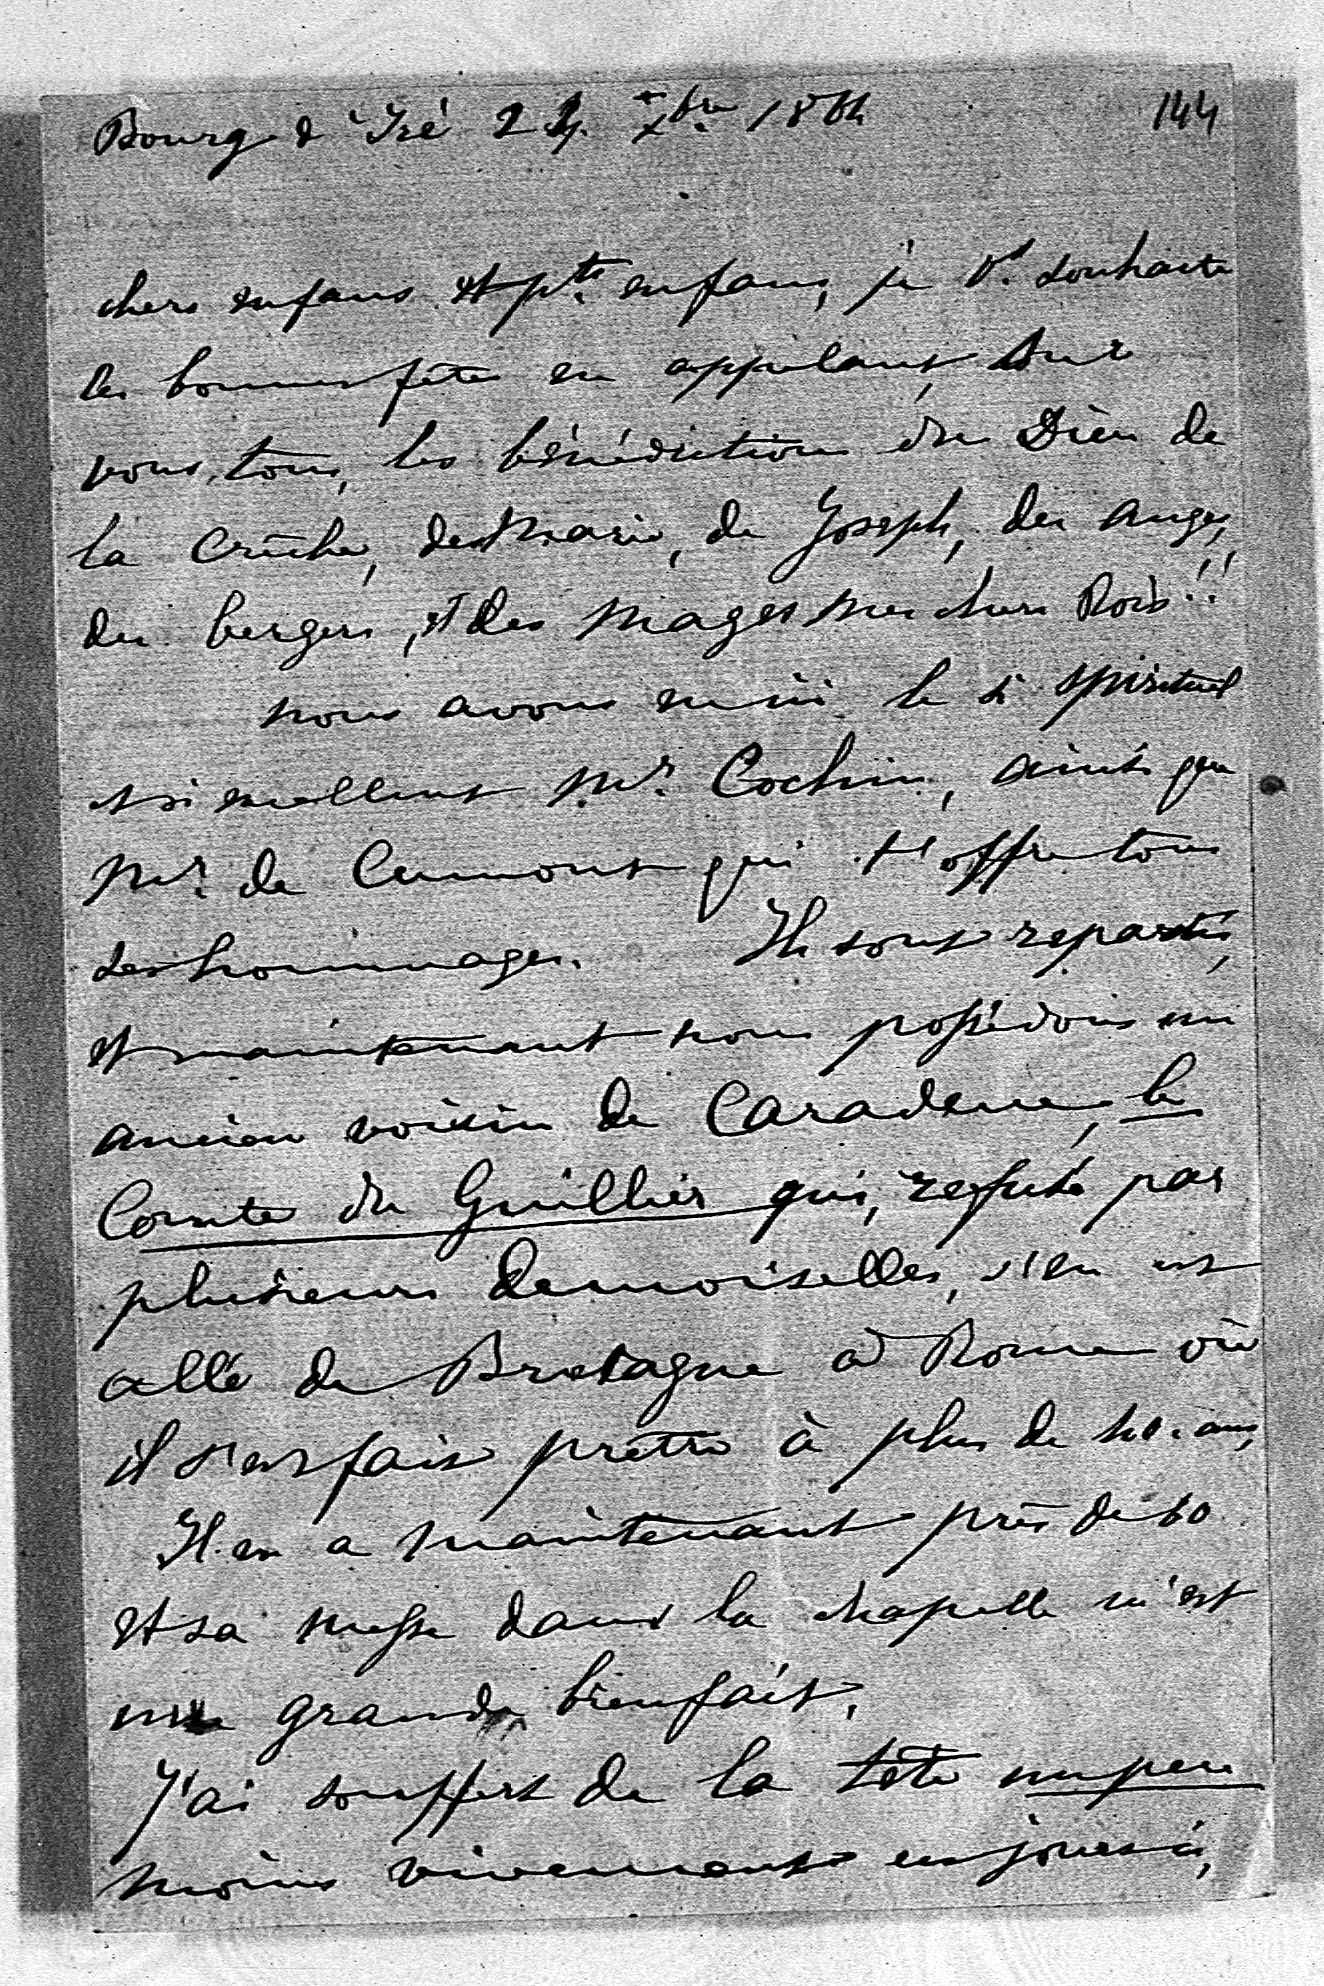 Bourg d'Iré 24 Xbre 1864 144
chers enfans et pts enfans, je vs souhaite
les bonnes fêtes en appelant sur
vous, tous, les bénédictions du Dieu de
la crêche, de Marie, de Joseph, des anges,
des bergers, et des mages mes chers Rois!!
nous avons eu ici le si spirituel
et si excellent Mr. Cochin, ainsi que
Mr. de Cumont qui t'offre tous
ses hommages. Ils sont repartis,
et maintenant nous possédons un
ancien voisin de Caradeuc, le
Comte du Guillier qui, refusé par
plusieurs demoiselles, s'en est
allé de Bretagne à Rome où
il s'est fait prêtre à plus de 40. ans,
Il en a maintenant près de 60
et sa messe dans la chapelle m'est
un grand bienfait.
J'ai souffert de la tête un peu
moins vivement ces jours ci,